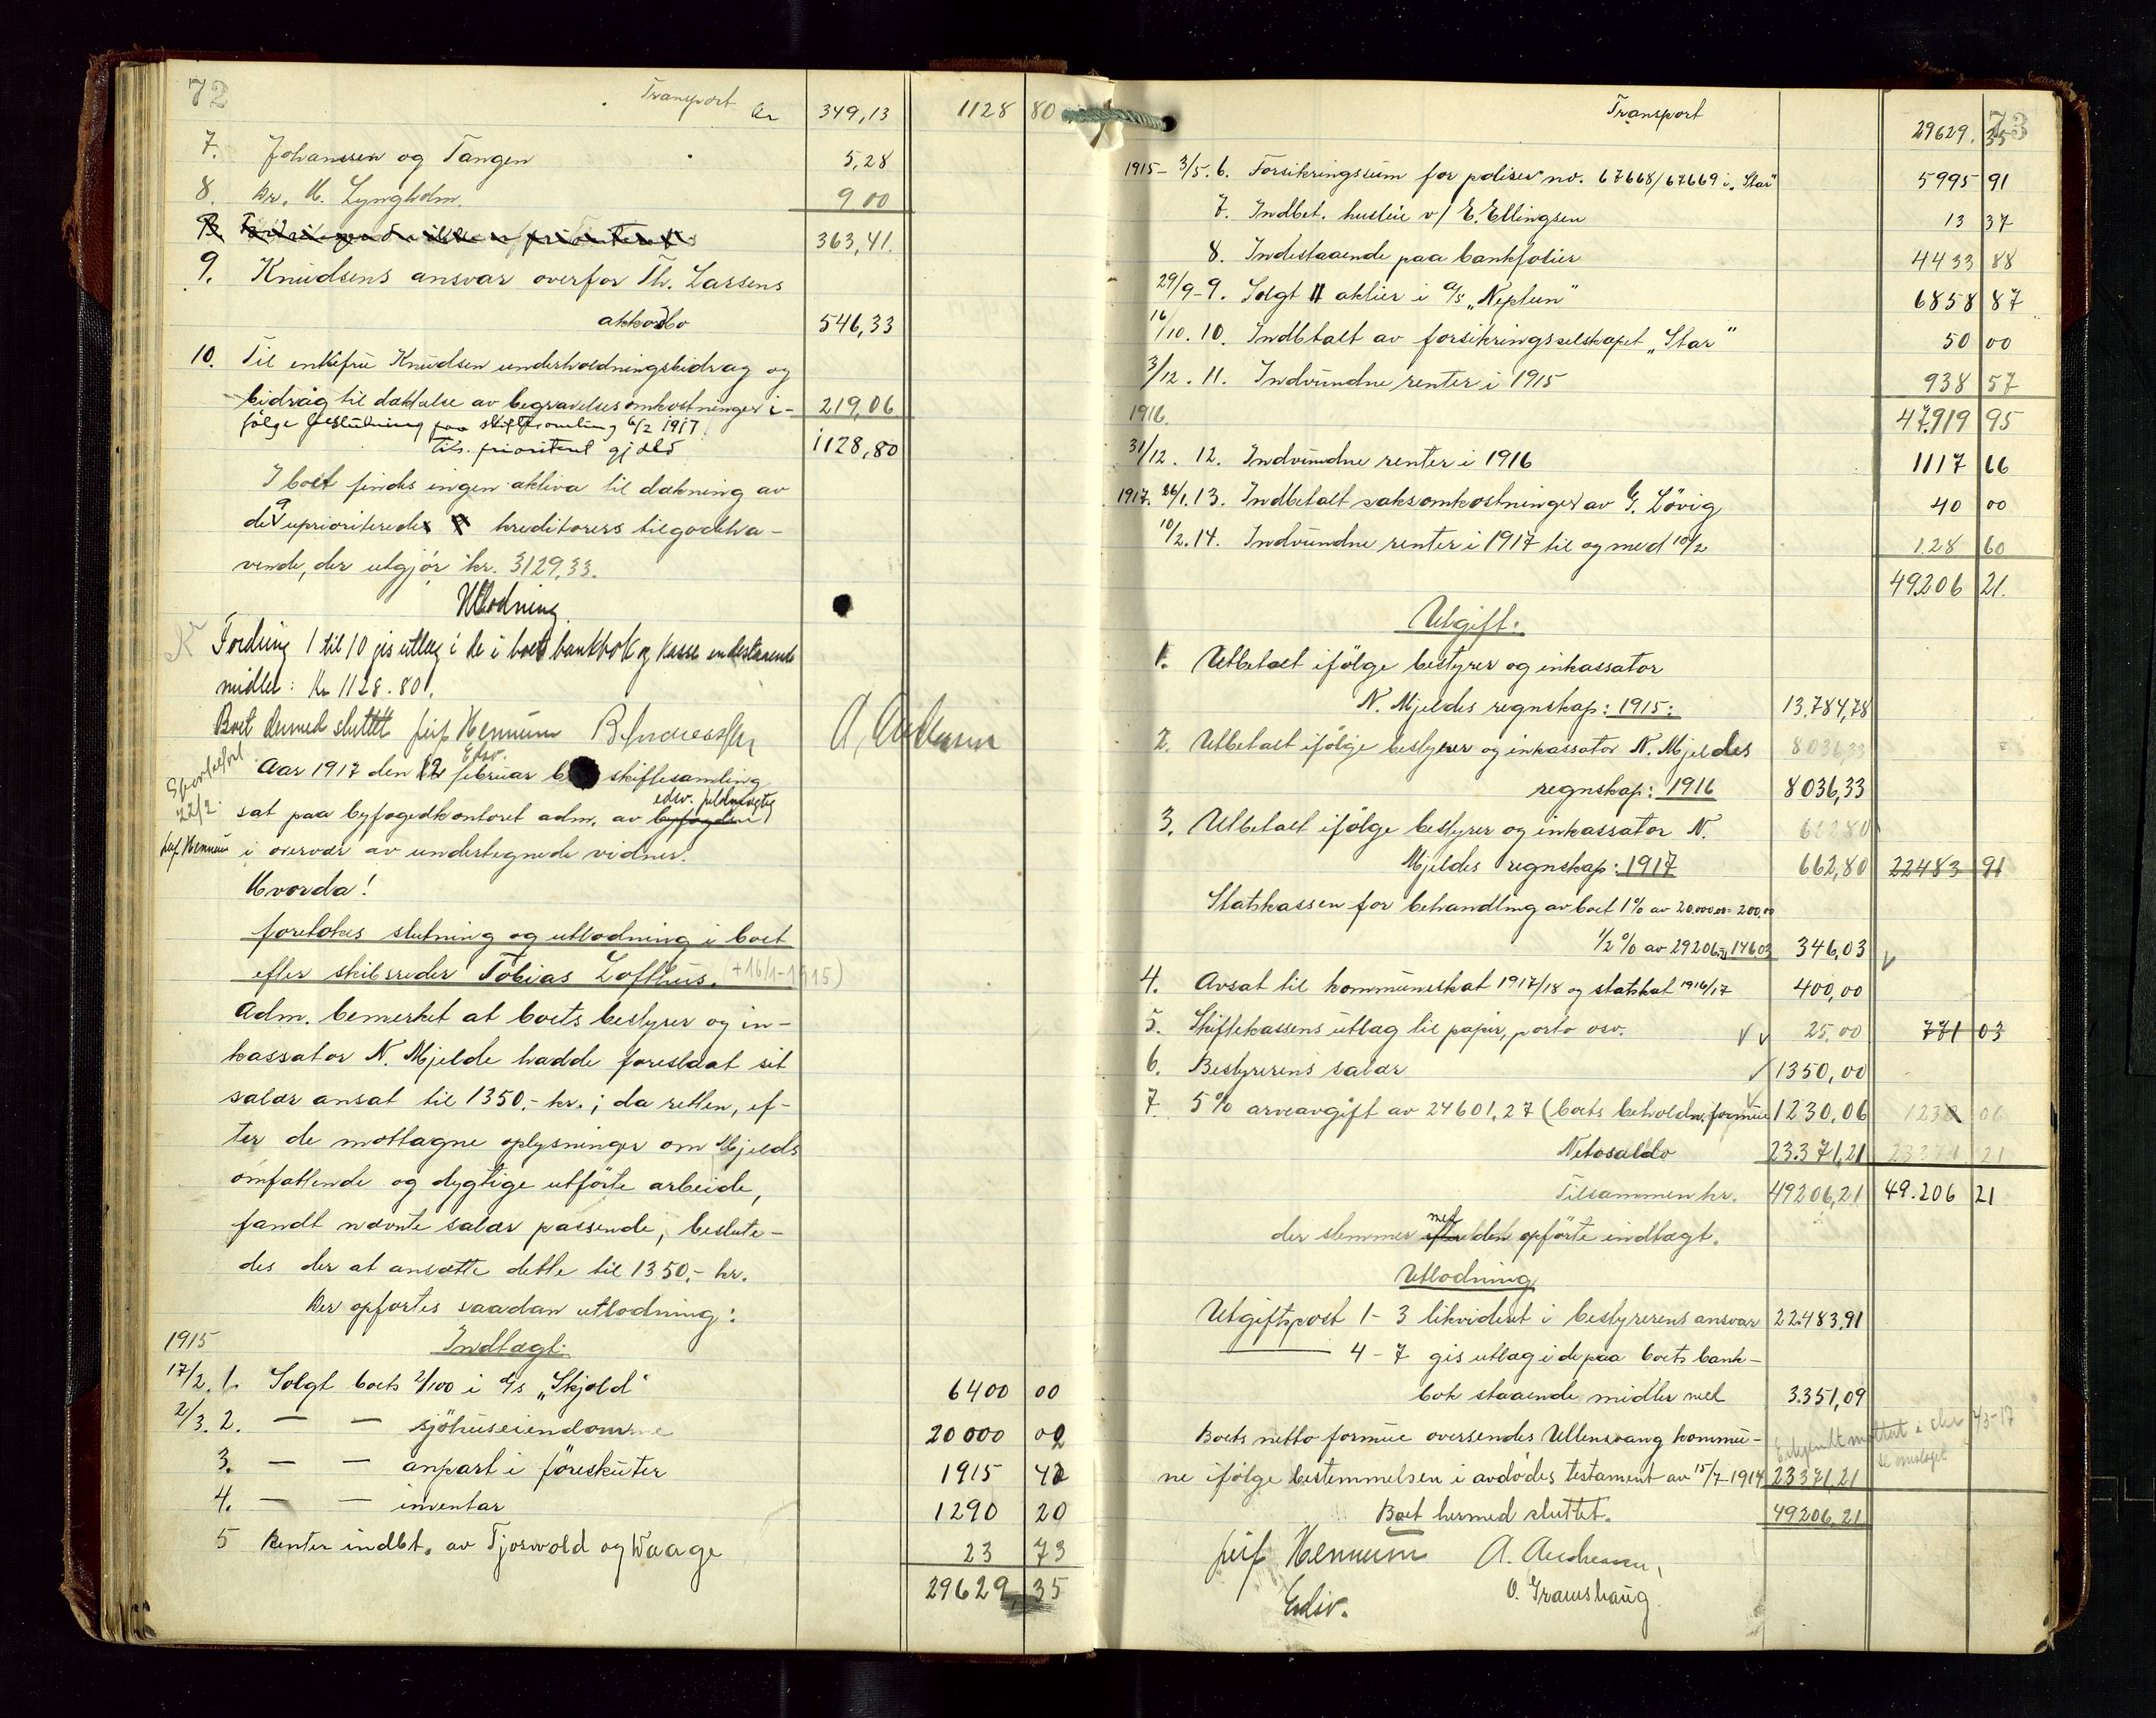 72
Transport kr 349,13 1128 80
7. Johanssen og Tangen 5,28
8. Kr. M. Lyngholm. 9 00
363,41.
9. Knudsens ansvar overfor Th. Larsens
akkordbo 546,33
10. Til enkefru Knudsen underholdningsbidrag og
bidrag til dækkelse av begravelsesomkostninger i- 219,06
følge beslutning paa skiftesamling 6/2 1917.
Tils. prioritert gjæld 1128,80
I boet findes ingen aktiva til dækning av
de uprioriterede kreditorers tilgodeha-
vende, der utgjør kr. 3129,33.
Utlodning
Fordring 1 til 10 gis utlæg i de i boets bankbok og kasse indestaaende
midler: Kr 1128.80.
Boet dermed sluttet Leif Hennum
Edsv.
Aar 1917 den 12 februar skiftesamling
sat paa byfogedkontoret adm. av byfogden edsv. fuldmægtig
Leif Hennum i overvær av undertegnede vidner.
22/2
Hvorda!
foretokes slutning og utlodning i boet
efter skibsreder Tobias Lofthus. (+16/1-1915)
Adm. bemerket at boets bestyrer og in-
kassator N. Mjelde hadde foreslaat sit
salær ansat til 1350,- kr.; da retten, ef-
ter de mottagne oplysninger om Mjelds
omfattende og dygtige utførte arbeide,
fandt nævnte salær passende, beslute-
des der at ansætte dette til 1350,- kr.
Der opførtes saadan utlodning:
1915 Indtægt:
17/2. 1. Solgt boets 2/100 i A/s „Skjold" 6400 00
2/3. 2. — — sjøhuseiendomme 20000 00
3. — — anpart i føreskuter 1915 42
4. — — inventar 1290 20
5 Renter indbt. av Tjosvold og Waage 23 73
29629,35
73
Transport 29629.35
1915- 3/5. 6. Forsikringssum for poliser no. 67668/67669 i „Star" 5995 91
7. Indbet. husleie v/ E. Ellingsen 13 37
8. Indestaaende paa bankfolier 4433 88
29/9- 9. Solgt 11 aktier i A/s „Neptun" 6858 87
16/10. 10. Indbetalt av forsikringsselskapet „Star" 50 00
3/12. 11. Indvundne renter i 1915 938 57
1916. 47919 95
31/12. 12. Indvundne renter i 1916 1117 66
1917. 26/1. 13. Indbetalt saksomkostninger av G. Løvig 40 00
10/2. 14. Indvundne renter i 1917 til og med 10/2 128 60
49206 21.
Utgift:
1. Utbetalt ifølge bestyrer og inkassator
N. Mjeldes regnskap: 1915: 13.784,78
2. Utbetalt ifølge bestyrer og inkassator N. Mjeldes 8036,33
regnskap: 1916 8036,33
3. Utbetalt ifølge bestyrer og inkassator N. 662 80
Mjeldes regnskap: 1917 662,80 22483 91
Statskassen for behandling av boet 1% av 20.000.00 = 200,00
1/2 % av 29206.21 146.03 346,03
4. Avsat til kommuneskat 1917/18 og statskat 1916/17 400,00
5. Skiftekassens utlæg til papir, porto osv. 25,00 771 03
6. Bestyrerens salær 1350,00
7. 5% arveavgift av 24601,27 (boets beholdn. formue 1230,06 1230 06
Netosaldo 23.371,21 23371 21
Tilsammen kr. 49206,21 49.206 21
der stemmer med den opførte indtægt.
Utlodning
Utgiftspost 1-3 likvidert i bestyrerens ansvar 22.483.91
4-7 gis utlæg i de paa boets bank-
bok staaende midler med 3.351,09
Boets netto formue oversendes Ullensvang kommu-
ne ifølge bestemmelsen i avdødes testament av 15/7-1914 23371,21
Boet hermed sluttet. 49206,21
Leif Hennum
Edsv.
O. Gramshaug